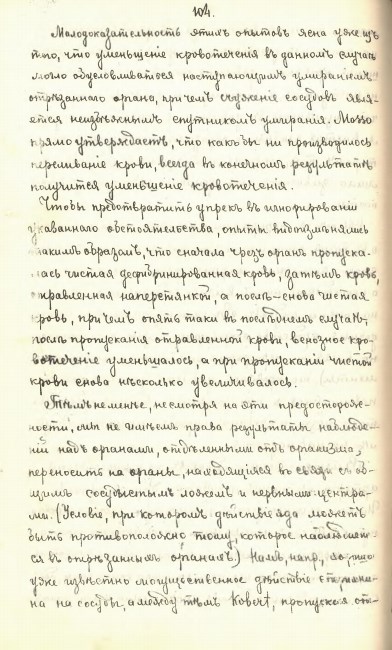 104.
Малодоказательность этихъ опытовъ ясна уже изъ
того, что уменьшеніе кровотеченія въ данномъ случаѣ
могло обусловливаться наступающимъ умираніемъ
отрѣзаннаго органа, причемъ съуженіе сосудовъ явля-
ется неизбѣжнымъ спутникомъ умиранія. Mosso
прямо утверждаетъ, что какъ бы ни производилось
переливаніе крови, всегда въ конечномъ результатѣ
получится уменьшеніе кровотеченія.
Чтобы предотвратить упрекъ въ игнорированіи
указаннаго обстоятельства, опыты видоизмѣнялись
такимъ образомъ, что сначала чрезъ органъ пропуска-
лась чистая дефибринированная кровь, затѣмъ кровь,
отравленная наперстянкой, а послѣ снова чистая
кровь, причемъ опять таки въ послѣднемъ случаѣ,
послѣ пропусканія отравленной крови, венозное кро-
вотеченіе уменьшалось, а при пропусканіи чистой
крови снова нѣсколько увеличивалось.
Тѣмъ неменѣе, несмотря на эти предосторож-
ности, мы не имѣемъ права результаты наблюде-
ній надъ органами, отдѣленными отъ организма,
переносить на органы, находящіяся въ связи съ об-
щимъ сосудистымъ ложемъ и нервными центра-
ми. (Условіе, при которомъ дѣйствіе яда можетъ
быть противоположно тому, которое наблюдает-
ся въ отрѣзанныхъ органахъ) Намъ, напр,
уже извѣстно могущественное дѣйствіе
на на сосуды, а между тѣмъ Kobert, пропуская от-